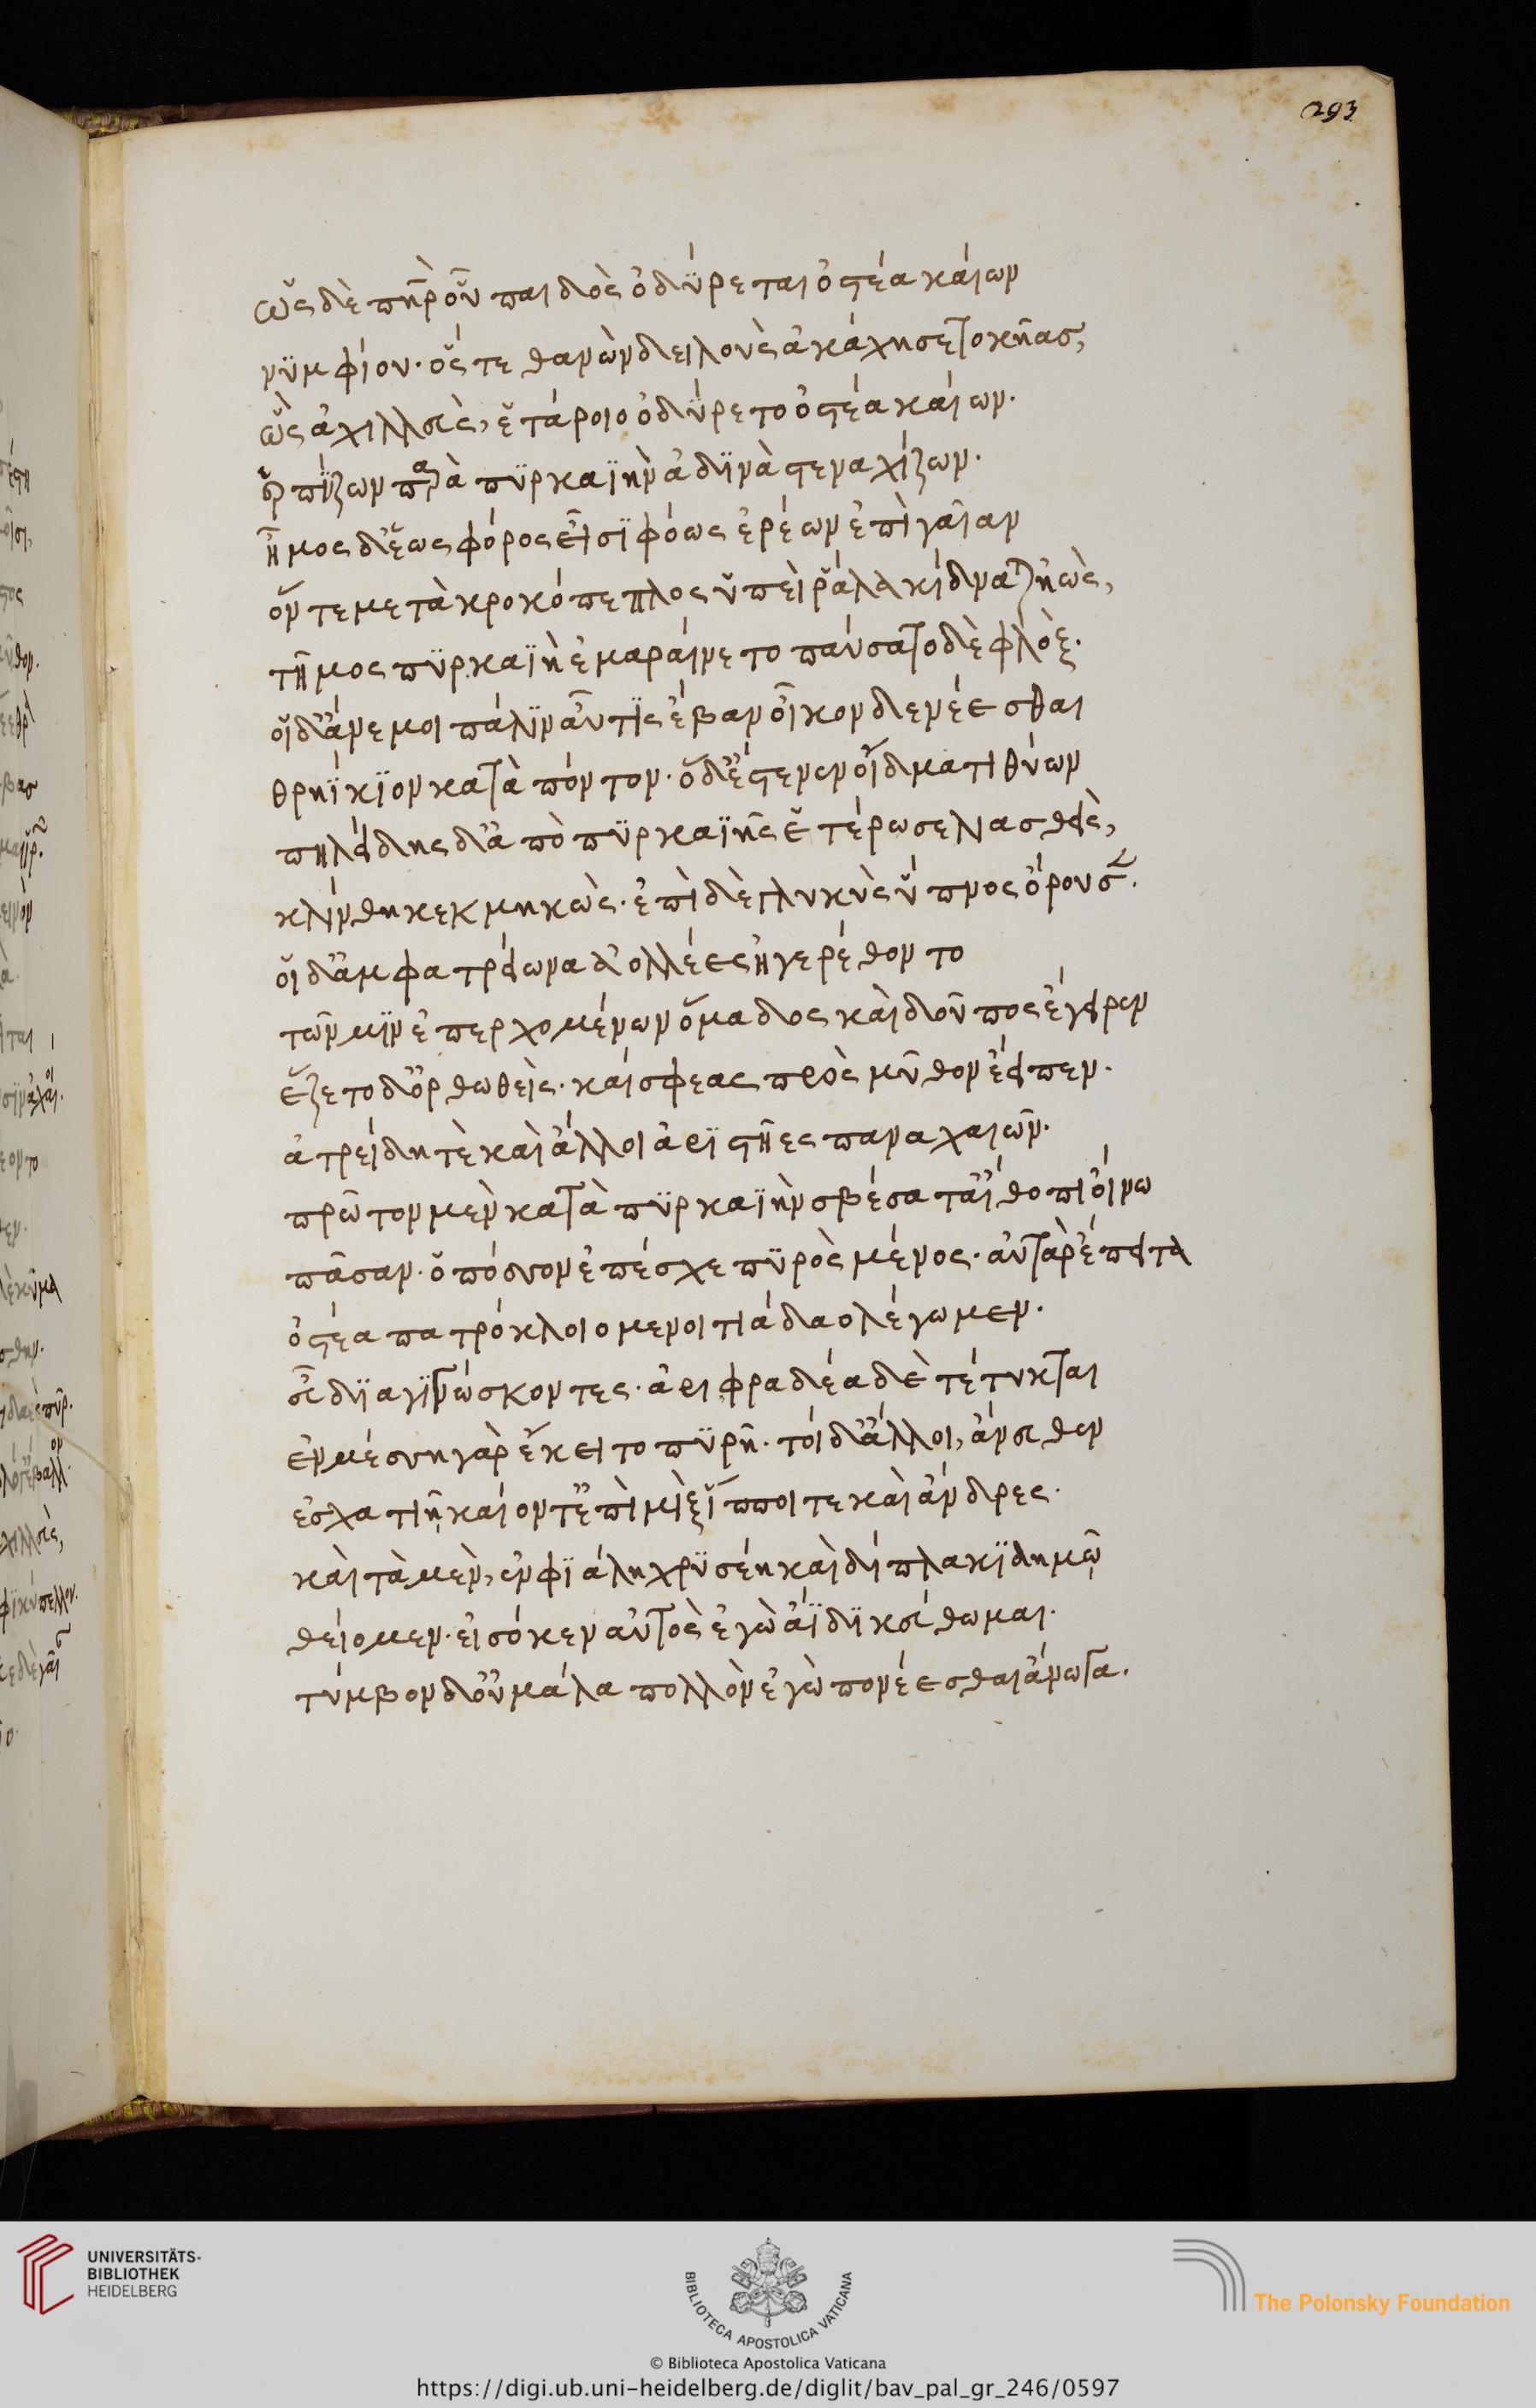 293
ὡς δὲ πὴρ οὗ παιδὸς ὀδύρεται ὀστέα καίων
νυμφίου· ὅς τε θανὼν δειλοὺς ἀκάχησε τοκῆας,
ὣς ἀχιλλεὺς, ἑτάροιο ὀδύρετο ὀστέα καίων·
ἑρπύζων παρὰ πϋρκαϊὴν ἀδϊνὰ στεναχίζων·
ἦμος δ' ἑωσφόρος εἶσϊ φόως ἐρέων ἐπὶ γαῖαν
ὅν τε μετὰ κροκόπεπλος ὑπεὶρ ἅλα κίδναται ἠὼς,
τῆμος πϋρκαϊὴ ἐμαραίνετο παύσατο δὲ φλόξ·
οἱ δ' ἄνεμοι πάλϊν αὖτϊς ἔβαν οἶκον δενέεσθαι
θρηΐκϊον κατὰ πόντον· ὁ δ' ἔστενεν οἴδματι θύων
πηλείδης δ' ἀπὸ πϋρκαϊῆς ἑτέρωσε λιασθεὶς,
κλίνθη κεκμηκὼς· ἐπὶ δὲ γλυκὺς ὕπνος ὄρουσεν·
οἱ δ' ἀμφ' ατρείωνα ἀολλέες ἠγερέθοντο
τῶν μϊν ἐπερχομένων ὅμαδος καὶ δοῦπος ἔγειρεν
ἕζετο δ' ὀρθωθεὶς· καί σφεας πρὸς μῦθον ἔειπεν·
ἀτρείδη τὲ καὶ ἄλλοι ἀρϊστῆες παναχαιῶν·
πρῶτον μὲν κατὰ πϋρκαϊὴν σβέσατ' αἴθοπι οἴνω
πᾶσαν· ὁπόσσον ἐπέσχε πϋρὸς μένος· αὐτὰρ ἔπειτα
ὀστέα πατρόκλοιο μενοιτιάδαο λέγωμεν·
εὖ δϊαγϊνώσκοντες· ἀριφραδέα δὲ τέτυκται
ἐν μέσσῃ γὰρ ἔκειτο πϋρῆ· τοὶ δ' ἄλλοι, ἄνευθεν
ἐσχατιῇ καίοντ' ἐπὶ μὶξ ἵπποι τε καὶ ἄνδρες·
καὶ τὰ μὲν, ἐν φϊάλη χρϋσέη καὶ δίπλακϊ δημῷ
θείομεν· εἰσόκεν αὐτὸς ἐγὼ ἄϊδϊ κεύθωμαι·
τύμβον δ' οὐ μάλα πολλὸν ἐγὼ πονέεσθαι ἄνωγα.
UNIVERSITÄTS-
BIBLIOTHEK
HEIDELBERG
BIBLIOTECA APOSTOLICA VATICANA
The Polonsky Foundation
© Biblioteca Apostolica Vaticana
https://digi.ub.uni-heidelberg.de/diglit/bav_pal_gr_246/0597